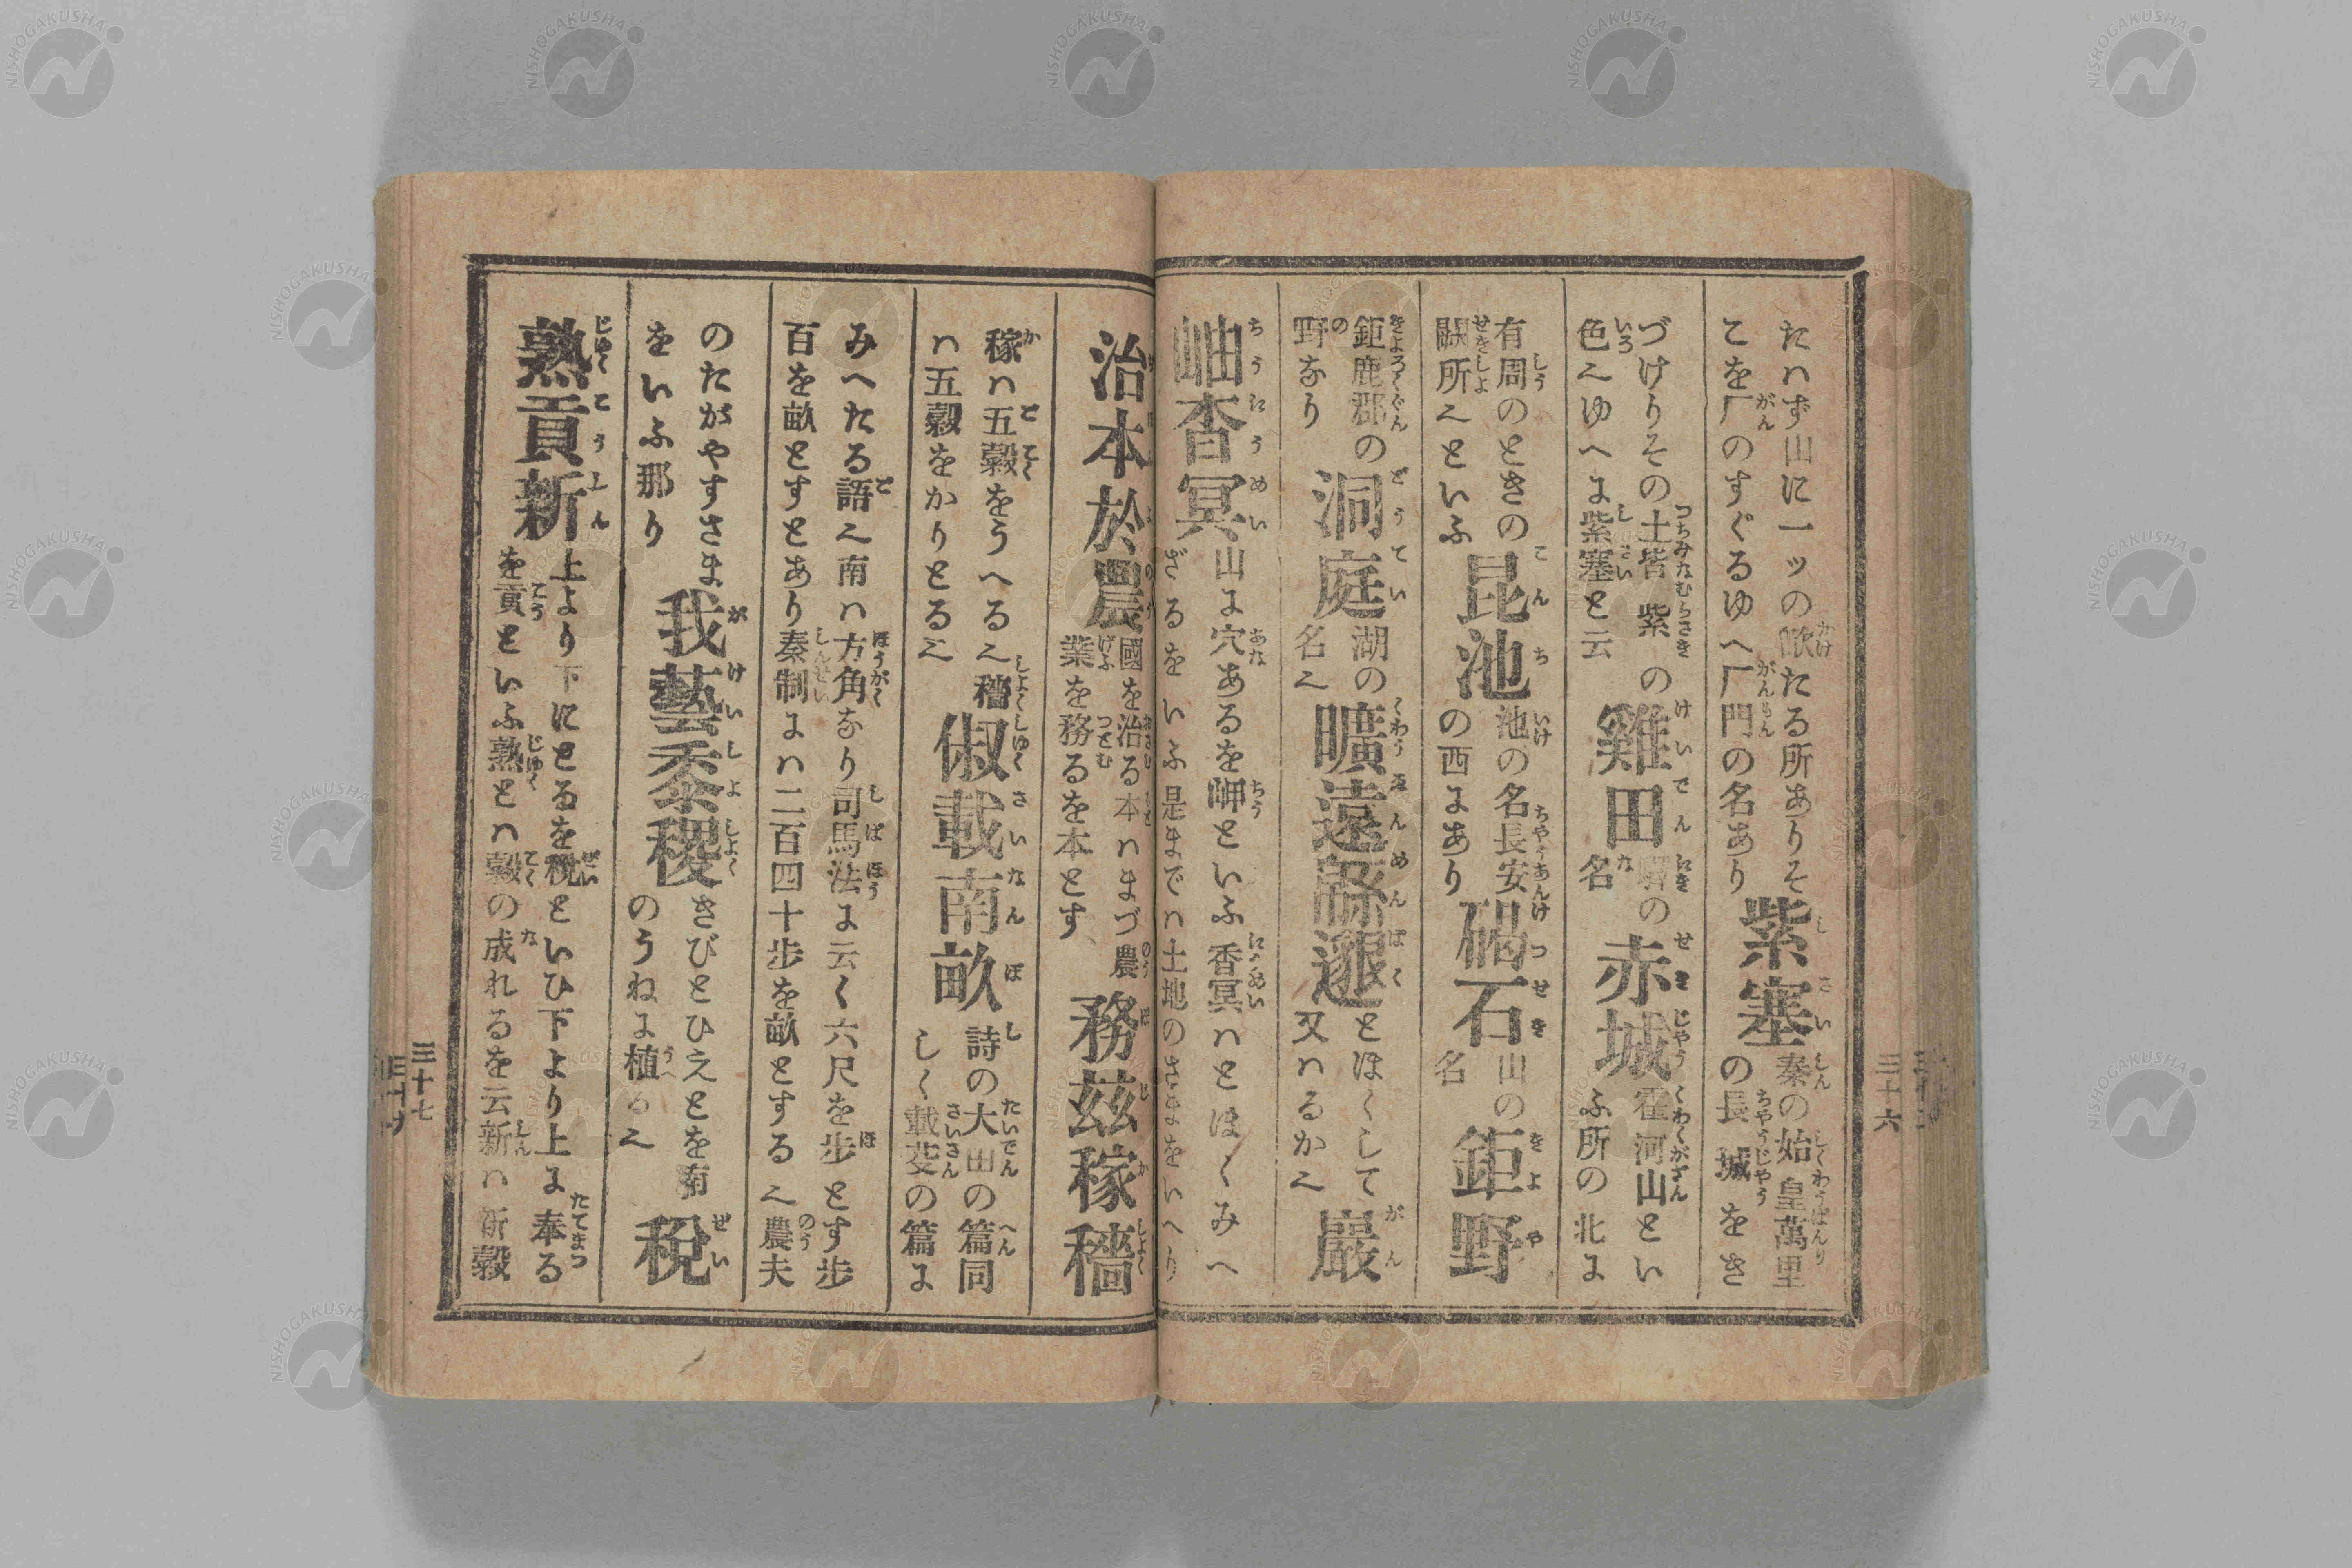 たハず山に一ッの歇たる所ありそ
こを厂のすぐるゆへ厂門の名あり
紫塞
秦の始皇萬里
の長城をき
づけりその土皆紫の
色〻ゆへに紫塞と云
雞田
の
名
赤城
霍河山とい
ふ所の北に
有周のときの
闕所〻といふ
昆池
池の名長安
の西にあり
碣石
山の
名
鉅野
鉅鹿郡の
野なり
洞庭
湖の
名〻
曠遠緜邈
とほくして
又ハるか〻
巖
岫杳冥
山に穴あるを岬といふ香冥ハとほくみへ
ざるをいふ是までハ土地のさまをいへり
治本於農
國を治る本ハまづ農
業を務るを本とす
務茲稼穡
稼ハ五穀をうへる〻穡
ハ五穀をかりとる〻
俶載南畝
詩の大田の篇同
しく載芟の篇に
みへたる語〻南ハ方角なり司馬法に云く六尺を歩とす歩
百を畝とすとあり秦制にハ二百四十歩を畝とする〻農夫
のたがやすさま
をいふ那り
我藝黍稷
きびとひえとを南
のうねに植る〻
税
熟貢新
上より下にとるを税といひ下より上に奉る
を貢といふ熟とハ穀の成れるを云新ハ新穀
三十六
三十七
NISHOGAKUSHA